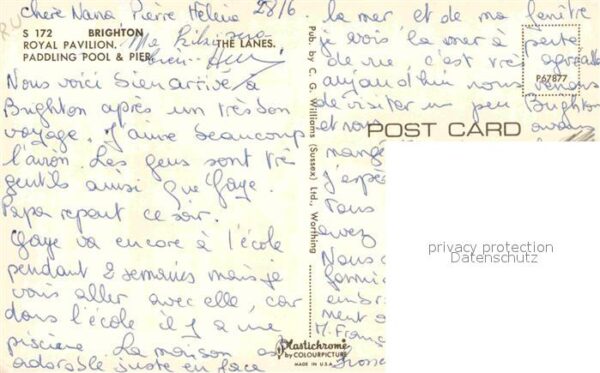 Chère Nana Pierre Hélène 28/6
S 172 BRIGHTON
ROYAL PAVILION. THE LANES.
PADDLING POOL & PIER
Nous voici bien arrivé à
Brighton après un très bon
voyage. J'aime beaucoup
l'avion. Les gens sont très
gentils ainsi que Gaye.
Papa repart ce soir.
Gaye va encore à l'école
pendant 2 semaines mais je
vais aller avec elle, car
dans l'école il y a une
piscine. La maison est
adorable juste en face
Pub. by C. G. Williams (Sussex) Ltd., Worthing
Plastichrome
by COLOURPICTURE
MADE IN U.S.A.
la mer et de ma fenêtre
je vois la mer à perte
de vue, c'est très agréable
aujourd'hui nous venons
de visiter un peu Brighton
et nous avons
P67877
POST CARD
mangé
J'espère
vous
avez
Nous
embras
ment
M. Franç
privacy protection
Datenschutz